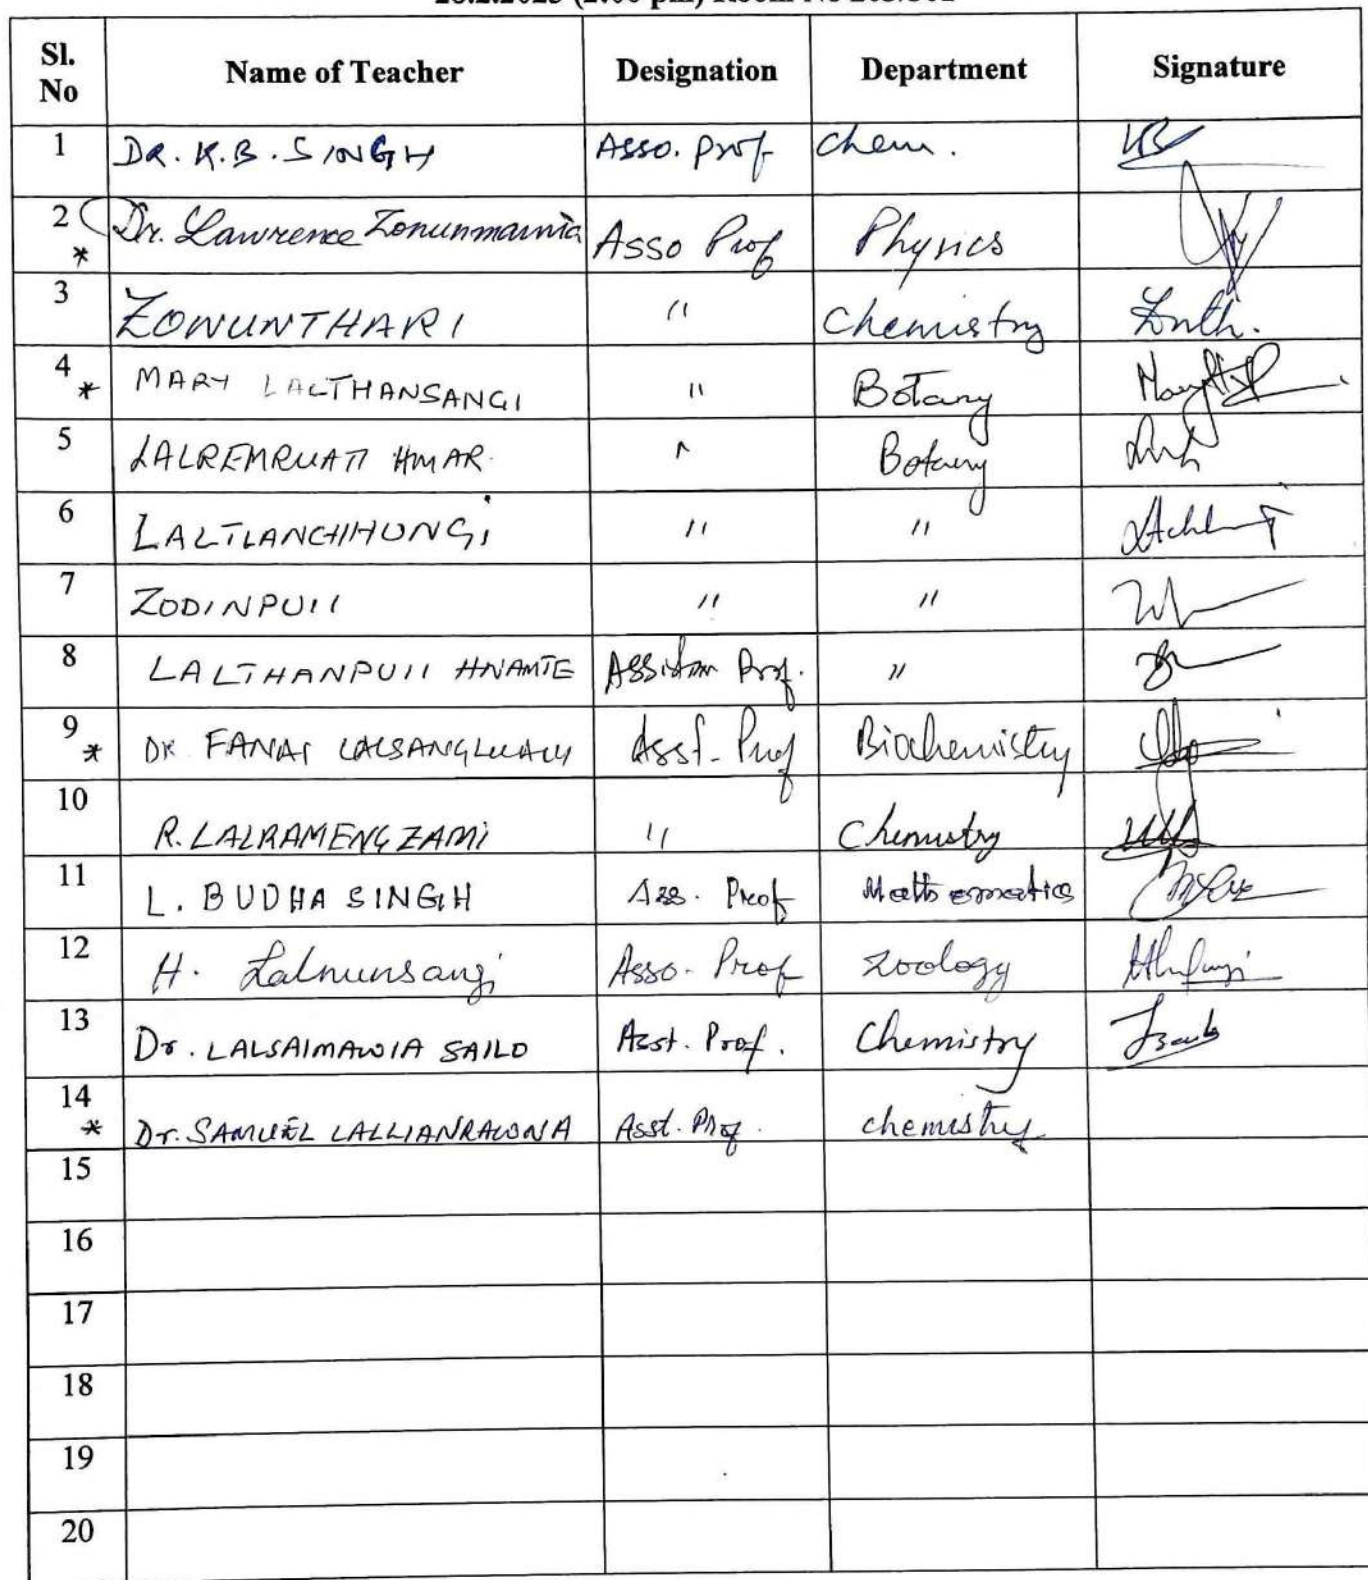 Sl. No Name of Teacher Designation Department Signature
1 DR. K.B. SINGH Asso. Prof Chem.
2 * Dr. Lawrence Zonunmawia Asso Prof Physics
3 ZONUNTHARI " Chemistry Znth.
4 * MARY LALTHANSANGI " Botany
5 LALREMRUATI HMAR. " Botany
6 LALTLANCHHUNGi " "
7 ZODINPUII " "
8 LALTHANPUII HNAMTE Assistan Prof. "
9 * DR FANAI LALSANGLUAII Asst. Prof Biochemistry
10 R. LALRAMENGZAMi " Chemistry
11 L. BUDHA SINGH Ass. Prof Mathematics
12 H. Lalnunsangi Asso. Prof Zoology
13 Dr. LALSAIMAWIA SAILO Asst. Prof. Chemistry
14 * Dr. SAMUEL LALLIANRAWNA Asst. Prof. chemistry
15
16
17
18
19
20